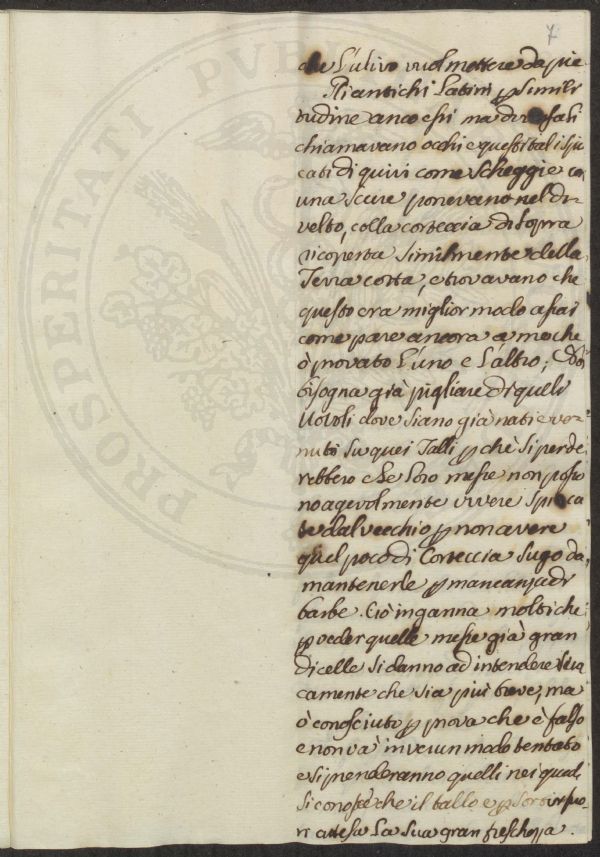 7
che L'ulivo vuol mettere da piè
Gli antichi Latini p Simili
tudine anco essi ma diversi
chiamavano occhi e questi tali spic
cati di quivi come Scheggie co
una Scure ponevano nel di
velto, colla corteccia di Sopra
ricoperta Similmente della
Terra cotta, e trovavano che
questo era miglior modo assai
come pare ancora a me che
ò provato L'uno e L'altro;
bisogna già pigliare di quelli
Vovoli dove siano già nati e ve
nuti Su quei Talli p che Si perde
rebbero che Loro messe non posso
no agevolmente vivere Spicca
te dal vecchio p non avere
quel poco di Corteccia Sugo da
mantenerle p mancanza di
barbe. Ciò inganna molti che
p veder quelle messe già gran
dicelle Si danno ad intendere
camente che sia più breve, ma
ò conosciuto p prova che è falso
e non và in veiun modo tentato
e si prenderanno quelli nei quali
Si conosce che il tallo è p
ri attesa La Sua gran freschezza.
PROSPERITATI PUBL